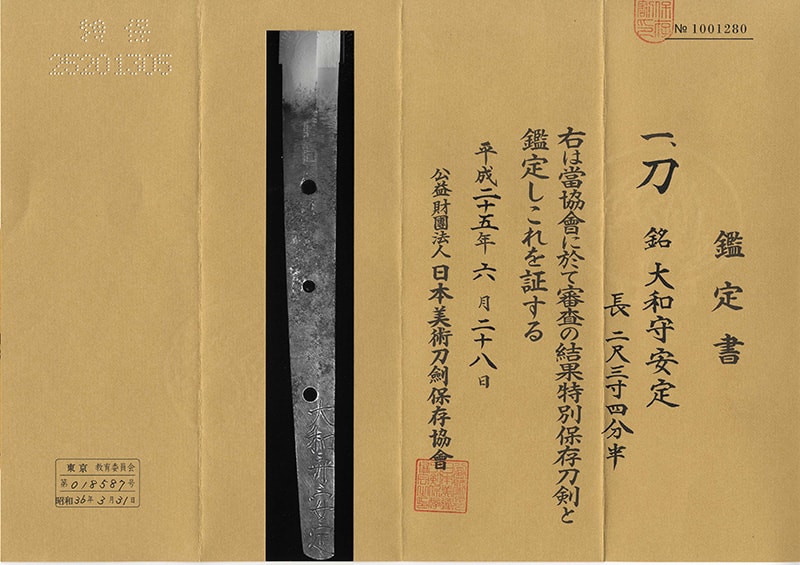 № 1001280
鑑定書
一、刀 銘 大和守安定
長 二尺三寸四分半
右は當協會に於て審査の結果特別保存刀剣と
鑑定しこれを証する
平成二十五年 六 月 二十八 日
公益財團法人 日本美術刀劍保存協會
大和守安定
特保
25201305
東京 教育委員会
第018587号
昭和36年3月31日